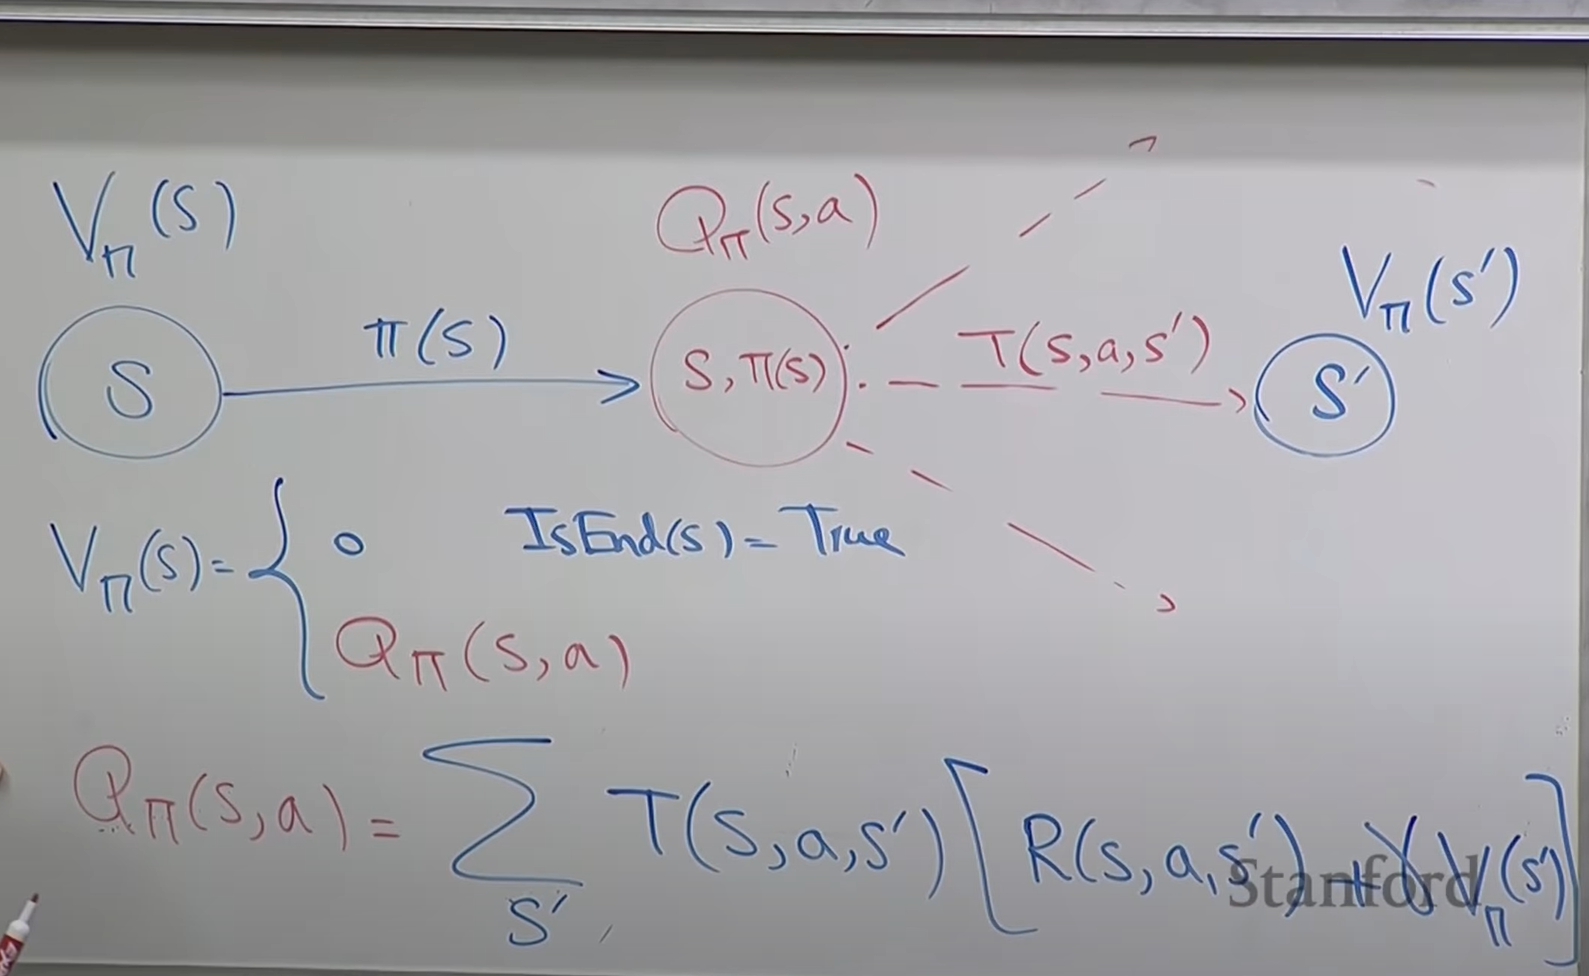 V_π(s)
Q_π(s,a)
V_π(s')
π(s)
T(s,a,s')
S
S,π(s)
S'
V_π(s)= { 0 IsEnd(s)=True
Q_π(s,a)
Q_π(s,a) = ∑_{s'} T(s,a,s') [R(s,a,s') + γ V_π(s')]
Stanford